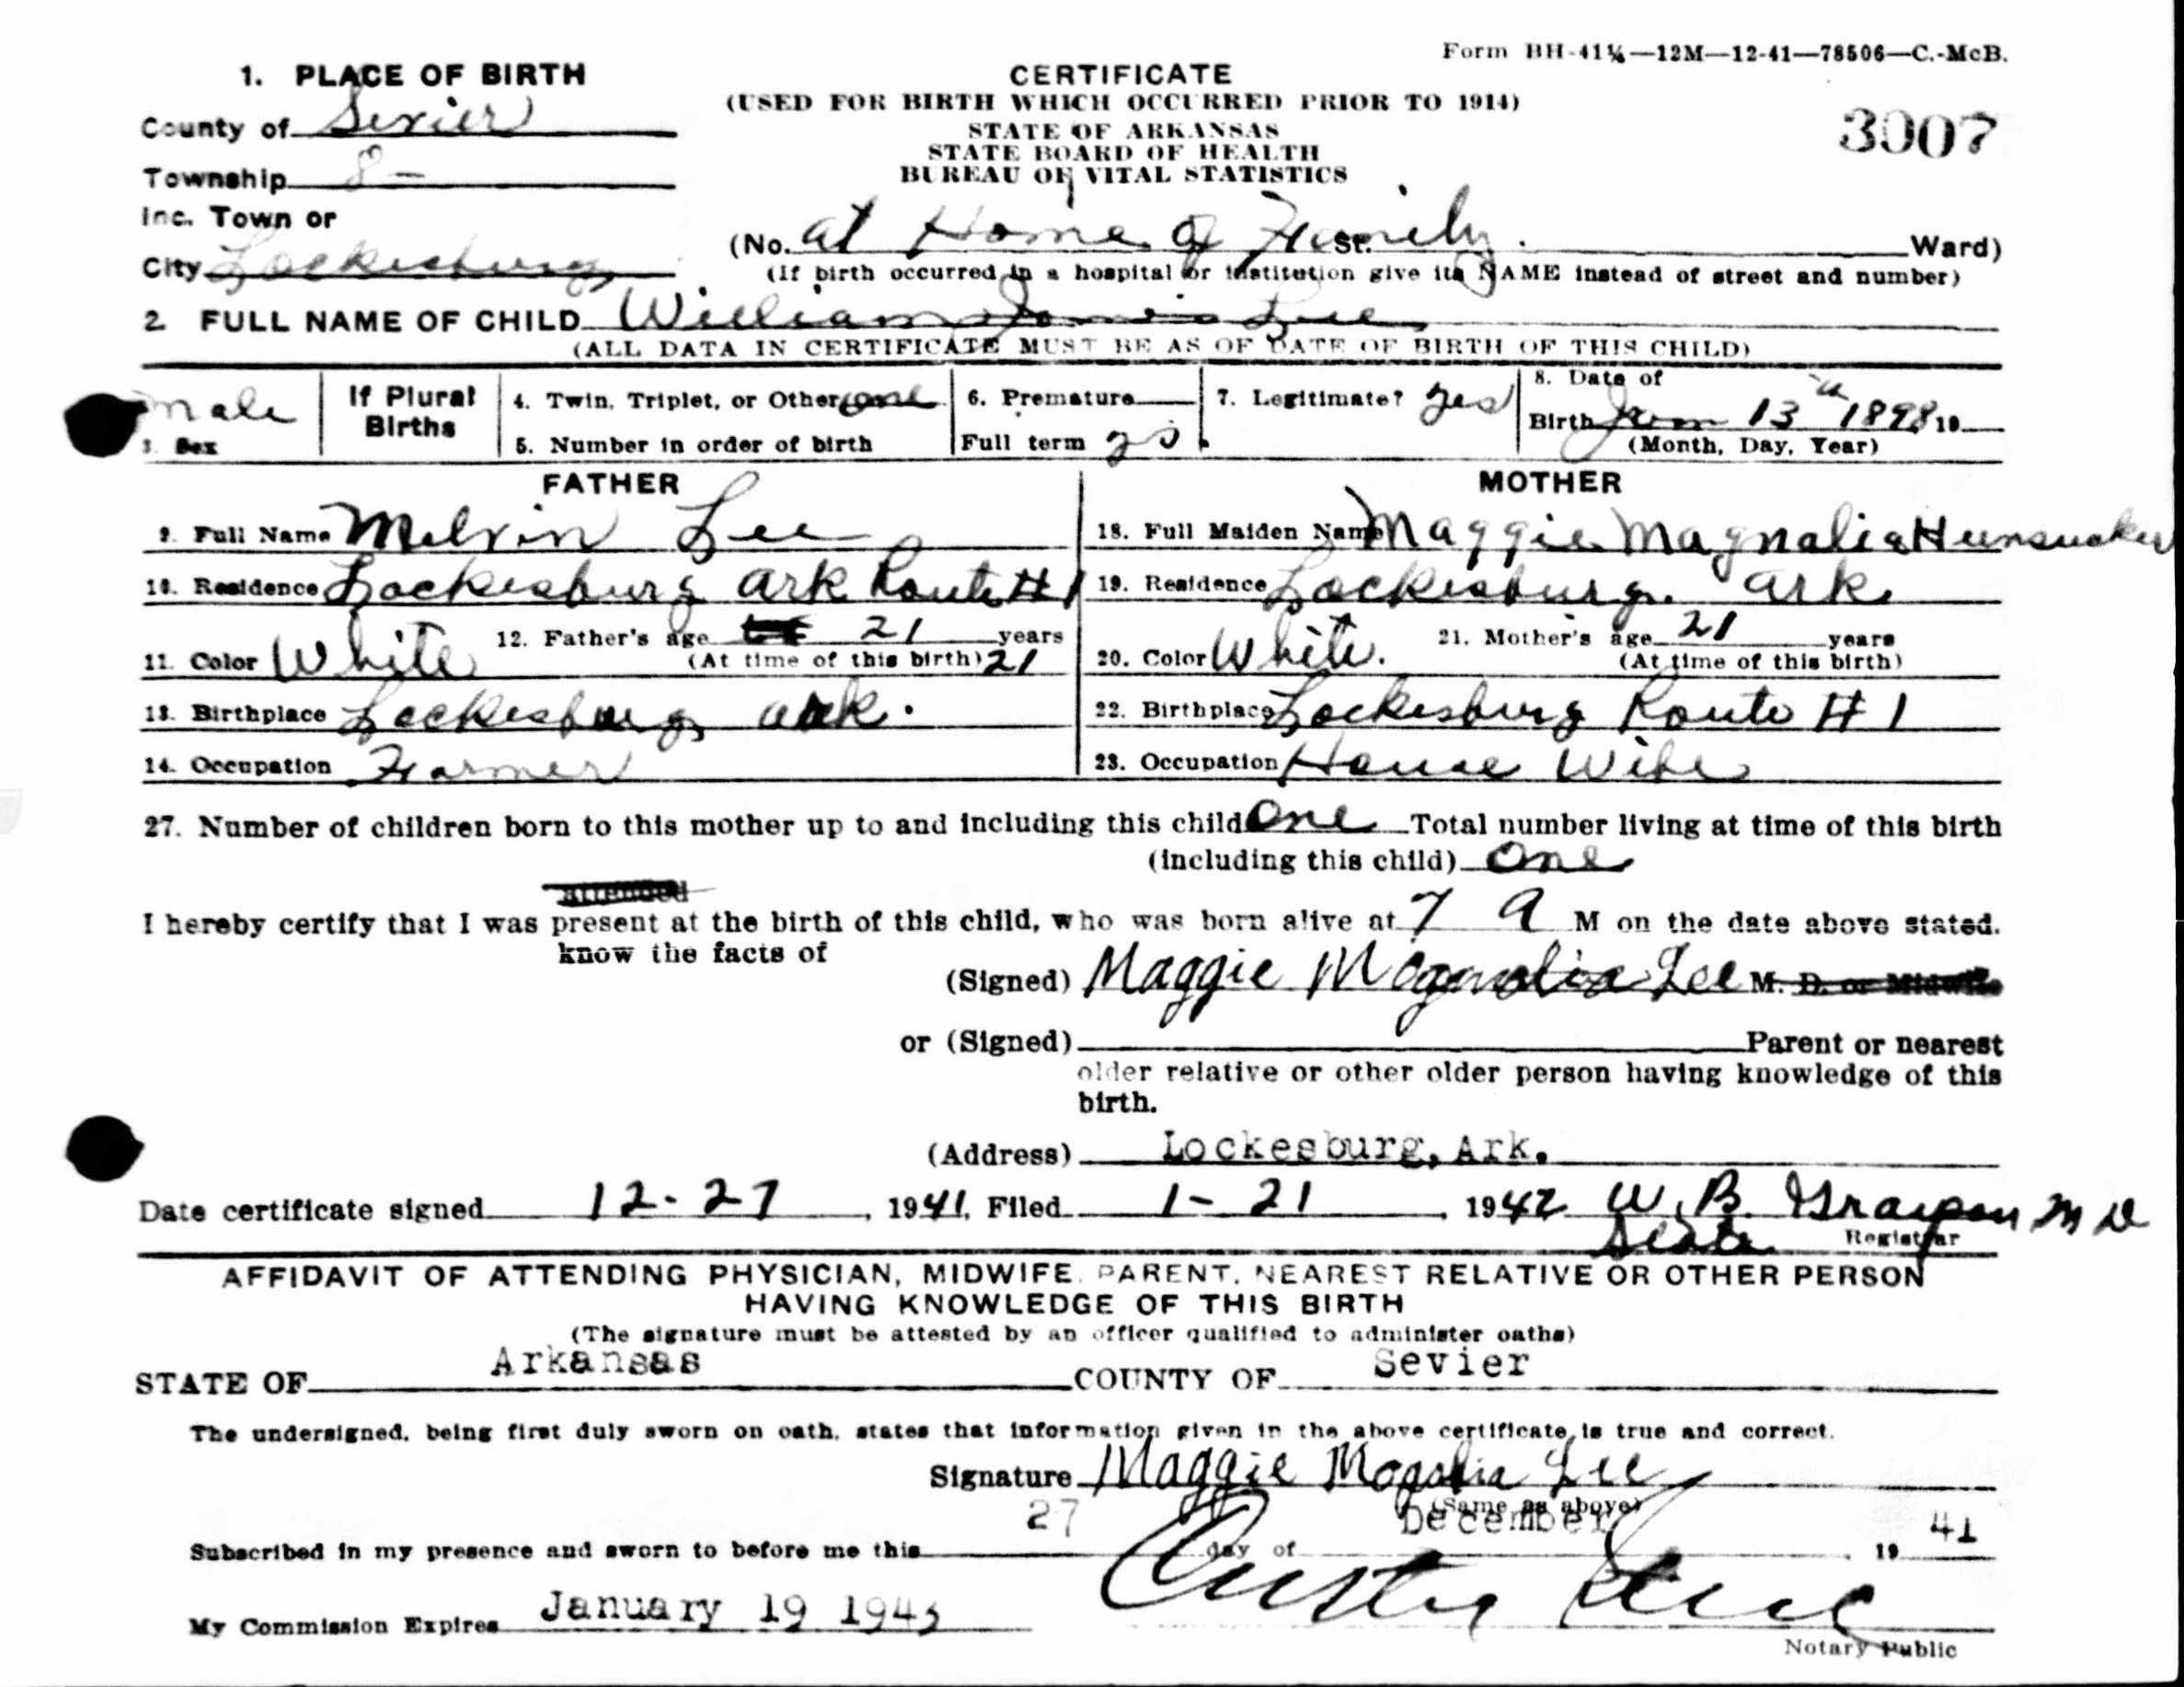 Form BH-41¼—12M—12-41—78506—C.-McB.
1. PLACE OF BIRTH
County of Sevier
Township 8 -
Inc. Town or
City Lockesburg
CERTIFICATE
(USED FOR BIRTH WHICH OCCURRED PRIOR TO 1914)
STATE OF ARKANSAS
STATE BOARD OF HEALTH
BUREAU OF VITAL STATISTICS
3007
(No. at Home of Family St. Ward)
(If birth occurred in a hospital or institution give its NAME instead of street and number)
2. FULL NAME OF CHILD William Lee
(ALL DATA IN CERTIFICATE MUST BE AS OF DATE OF BIRTH OF THIS CHILD)
male
3. Sex
If Plural
Births
4. Twin, Triplet, or Other one
5. Number in order of birth
6. Premature
Full term
7. Legitimate? yes
8. Date of
Birth 13 1898 19
(Month, Day, Year)
FATHER
9. Full Name Melvin Lee
10. Residence Lockesburg ark Route #1
11. Color White 12. Father's age 21 years
(At time of this birth) 21
13. Birthplace Lockesburg ark.
14. Occupation Farmer
MOTHER
18. Full Maiden Name Maggie Magnolia Hunsucker
19. Residence Lockesburg. ark.
20. Color White. 21. Mother's age 21 years
(At time of this birth)
22. Birthplace Lockesburg Route #1
23. Occupation House Wife
27. Number of children born to this mother up to and including this child One Total number living at time of this birth
(including this child) One
attended
I hereby certify that I was present at the birth of this child, who was born alive at 7 A M on the date above stated.
know the facts of
(Signed) Maggie Magnolia Lee M. D. or Midwife
or (Signed) Parent or nearest
older relative or other older person having knowledge of this
birth.
(Address) Lockesburg, Ark.
Date certificate signed 12-27, 1941, Filed 1-21, 1942 W. B. Grayson M D
State Registrar
AFFIDAVIT OF ATTENDING PHYSICIAN, MIDWIFE, PARENT, NEAREST RELATIVE OR OTHER PERSON
HAVING KNOWLEDGE OF THIS BIRTH
(The signature must be attested by an officer qualified to administer oaths)
STATE OF Arkansas COUNTY OF Sevier
The undersigned, being first duly sworn on oath, states that information given in the above certificate is true and correct.
Signature Maggie Lee
(Same as above)
Subscribed in my presence and sworn to before me this 27 day of December, 19 41
My Commission Expires January 19 1943
Notary Public